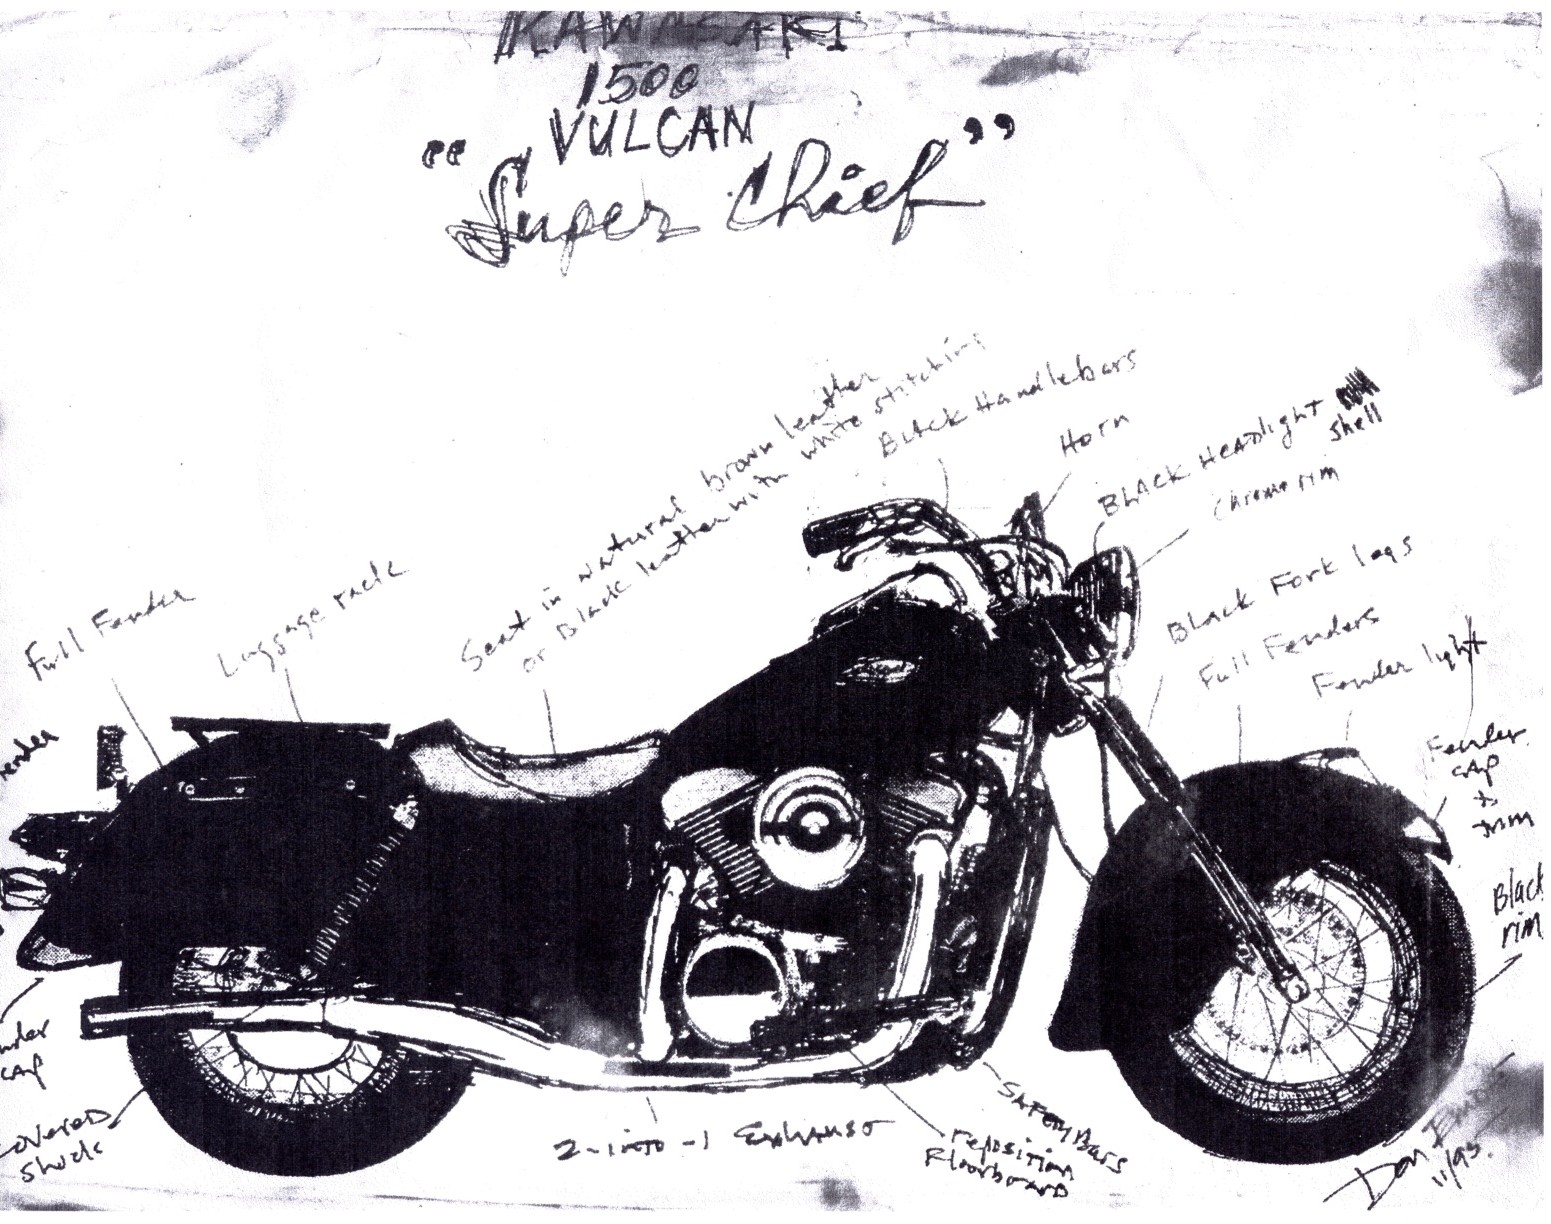 KAWASAKI
1500
VULCAN
"Super Chief"
Seat in natural brown leather
or Black leather with white stitching
Black Handlebars
Horn
BLACK Headlight
shell
Chrome rim
Black Fork legs
Full Fenders
Fender light
Full Fender
Luggage rack
Fender
cap
&
trim
Black
rim
cap
shock
2-into-1 Exhaust
reposition
Floorboard
Safety Bars
Don
11/93